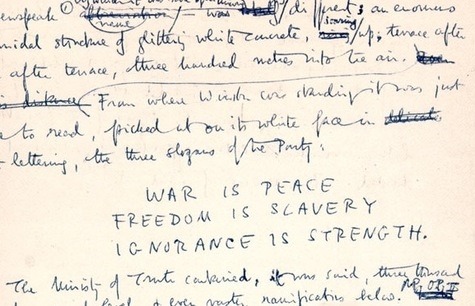 Newspeak ① was different: an enormous
midal structure of glittering white concrete, soaring up, terrace after
after terrace, three hundred metres into the air.
From where Winston was standing it was just
to read, picked out on its white face in
lettering, the three slogans of the Party:
WAR IS PEACE
FREEDOM IS SLAVERY
IGNORANCE IS STRENGTH.
The Ministry of Truth contained, it was said, three thousand
level, & ever vaster ramifications below.